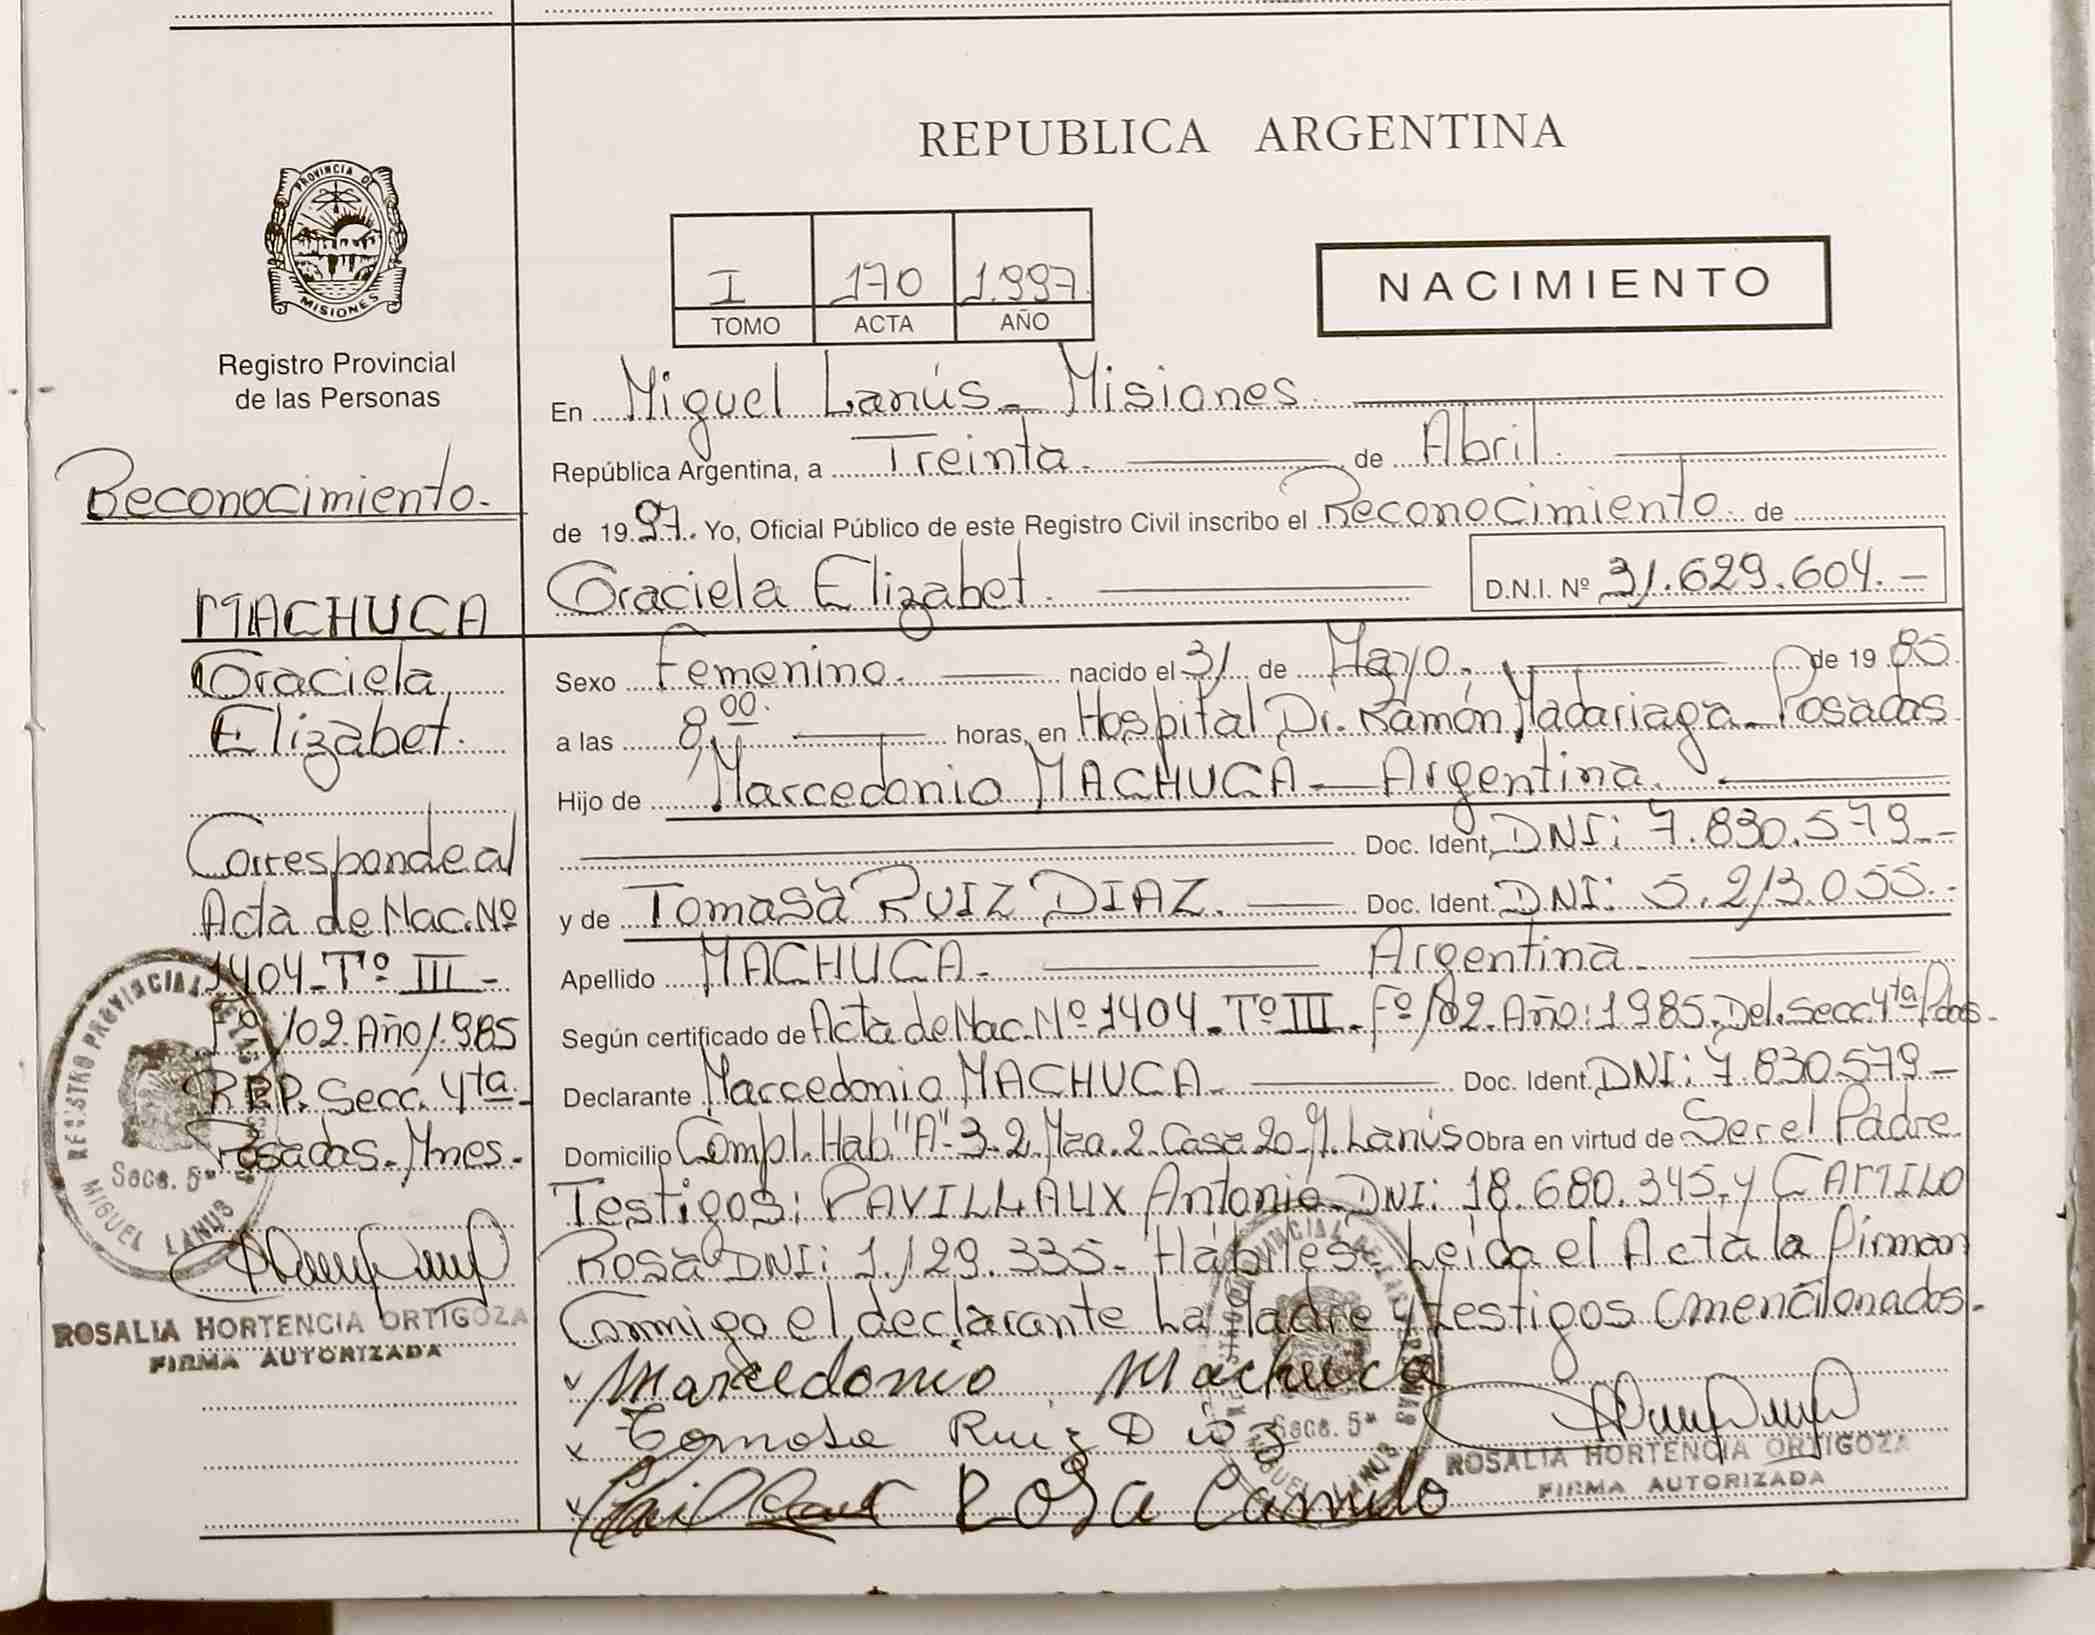 PROVINCIA DE
MISIONES
Registro Provincial
de las Personas
Reconocimiento.
MACHUCA
Graciela
Elizabet.
Corresponde al
Acta de Nac. Nº
1404 - Tº III -
Fº 102. Año 1.985
R.P.P. Secc. 4ta.
Posadas - Mnes.
REGISTRO PROVINCIAL DE LAS PERSONAS
Secc. 5ª
MIGUEL LANUS
ROSALIA HORTENCIA ORTIGOZA
FIRMA AUTORIZADA
REPUBLICA ARGENTINA
I 170 1.997.
TOMO ACTA AÑO
NACIMIENTO
En Miguel Lanús - Misiones.
República Argentina, a Treinta. de Abril.
de 1997. Yo, Oficial Público de este Registro Civil inscribo el Reconocimiento. de
Graciela Elizabet. D.N.I. Nº 31.629.604. -
Sexo Femenino. nacido el 31 de Mayo. de 1985
a las 8,00. horas, en Hospital Dr. Ramón Madariaga - Posadas
Hijo de Marcedonio MACHUCA - Argentina.
Doc. Ident. DNI: 7.830.579 -
y de Tomasa RUIZ DIAZ. Doc. Ident. DNI: 5.213.055. -
Apellido MACHUCA - Argentina
Según certificado de Acta de Nac. Nº 1404 - Tº III - Fº 102. Año: 1985. Del. Secc. 4ta Pdas.
Declarante Marcedonio MACHUCA - Doc. Ident. DNI: 7.830.579 -
Domicilio Compl. Hab "A" - 3-2 Mza. 2. Casa 20 - M. Lanús Obra en virtud de Ser el Padre
Testigos: PAVILLAUX Antonio - DNI: 18.680.345. y CAMILO
Rosa DNI: 1.129.335 - Hábiles - Leída el Acta la firman
Conmigo el declarante La Madre y testigos mencionados. -
Marcedonio Machuca
Tomasa Ruiz Diaz
Rosa Camilo
REGISTRO PROVINCIAL DE LAS PERSONAS
Secc. 5ª
MIGUEL LANUS
ROSALIA HORTENCIA ORTIGOZA
FIRMA AUTORIZADA